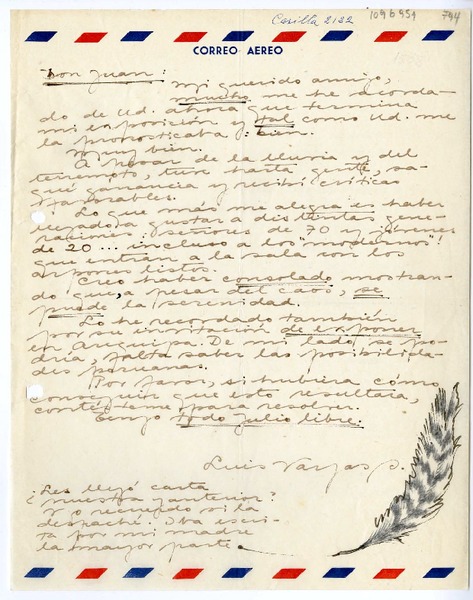 Casilla 2122
1096951 794
CORREO AEREO
Don Juan:
Mi querido amigo,
mucho me he acorda-
do de Ud. ahora que termina
mi exposición y tal como Ud. me
la pronosticaba: bien.
Muy bien.
A pesar de la lluvia y del
terremoto, tuve harta gente, sa-
qué ganancia y recibí críticas
favorables.
Lo que más me alegra es haber
llegado a gustar a distintas gene-
raciones: señores de 70 y jóvenes
de 20... incluso a los "modernos"!
que entran a la sala con los
arpones listos.
Creo haber consolado mostran-
do que, a pesar del caos, se
puede la serenidad.
Lo he recordado también
por su invitación de exponer
en Arequipa. De mi lado se po-
dría, falta saber las posibilida-
des peruanas.
Por favor, si hubiera cómo
conseguir que esto resultara,
contésteme para resolver.
Tengo todo Julio libre.
Luis Vargas
¿Les llegó carta
nuestra anterior?
No recuerdo si la
despaché. Iba escri-
ta por mi madre
la mayor parte.